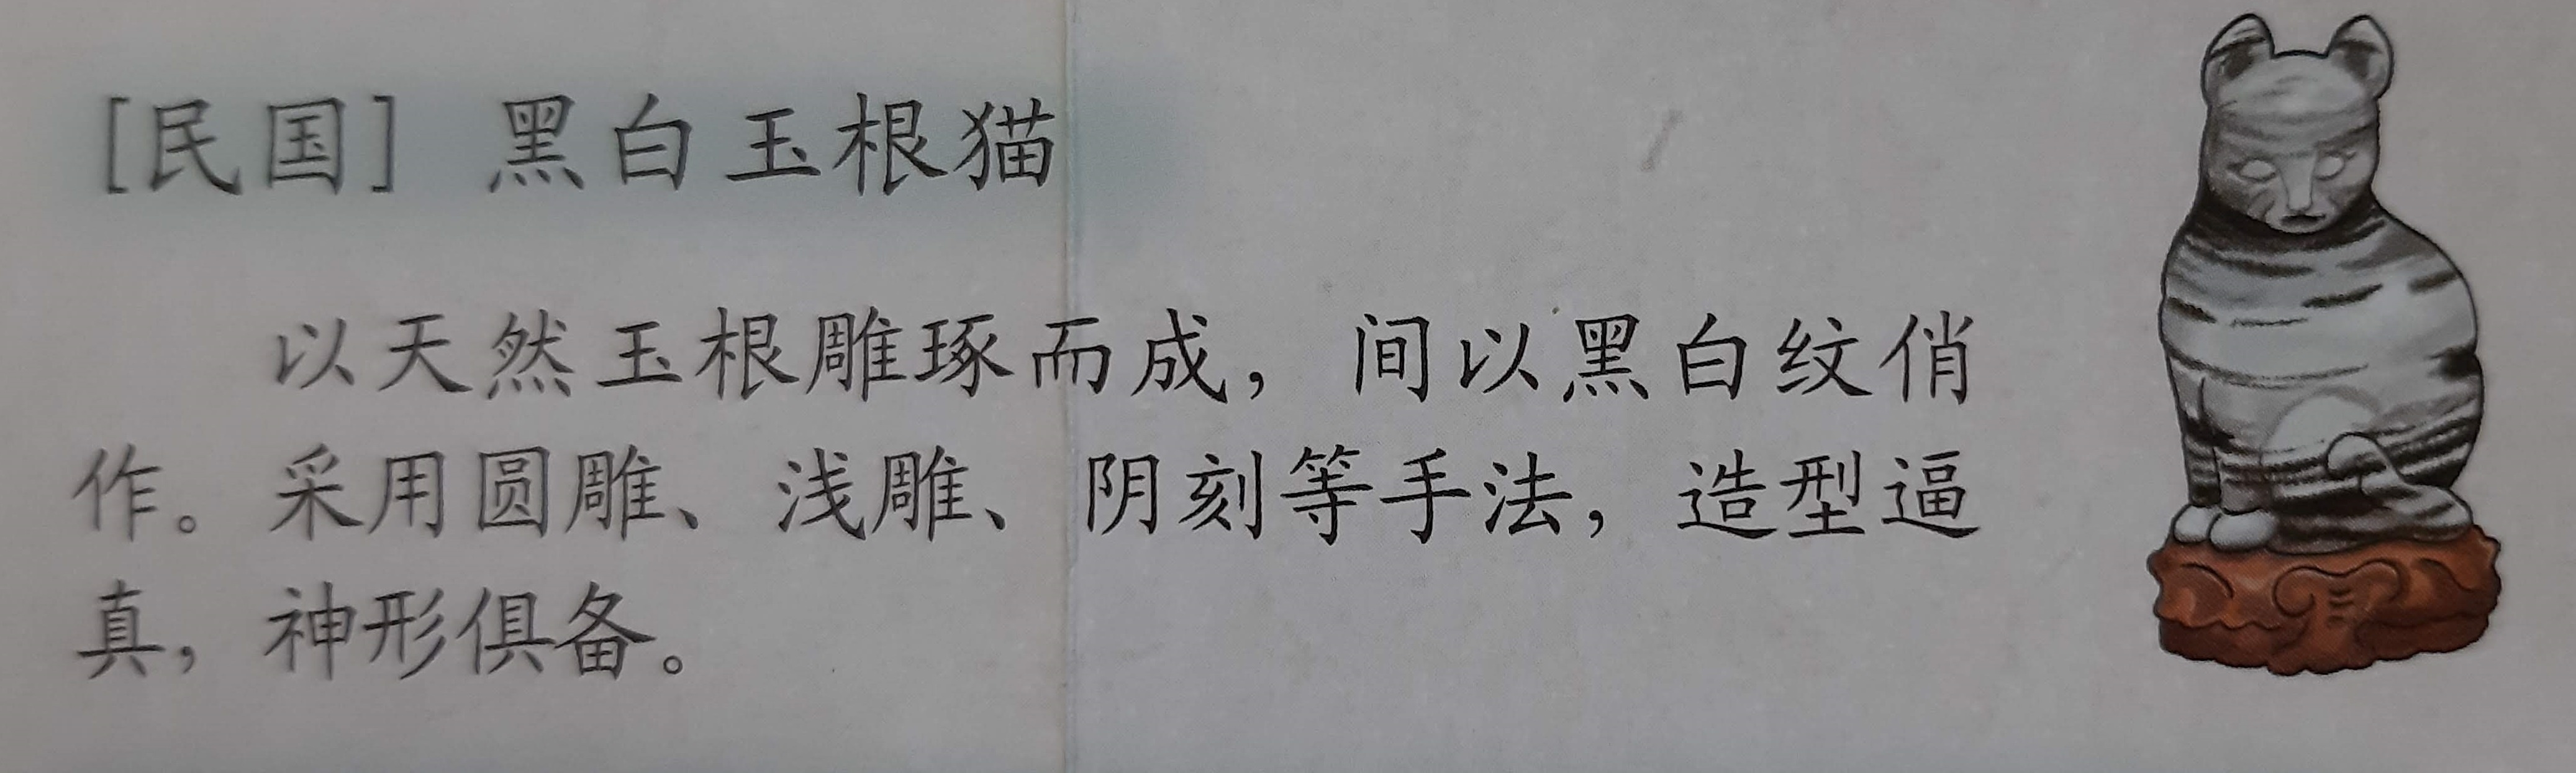 [民国] 黑白玉根猫
以天然玉根雕琢而成，间以黑白纹俏
作。采用圆雕、浅雕、阴刻等手法，造型逼
真，神形俱备。